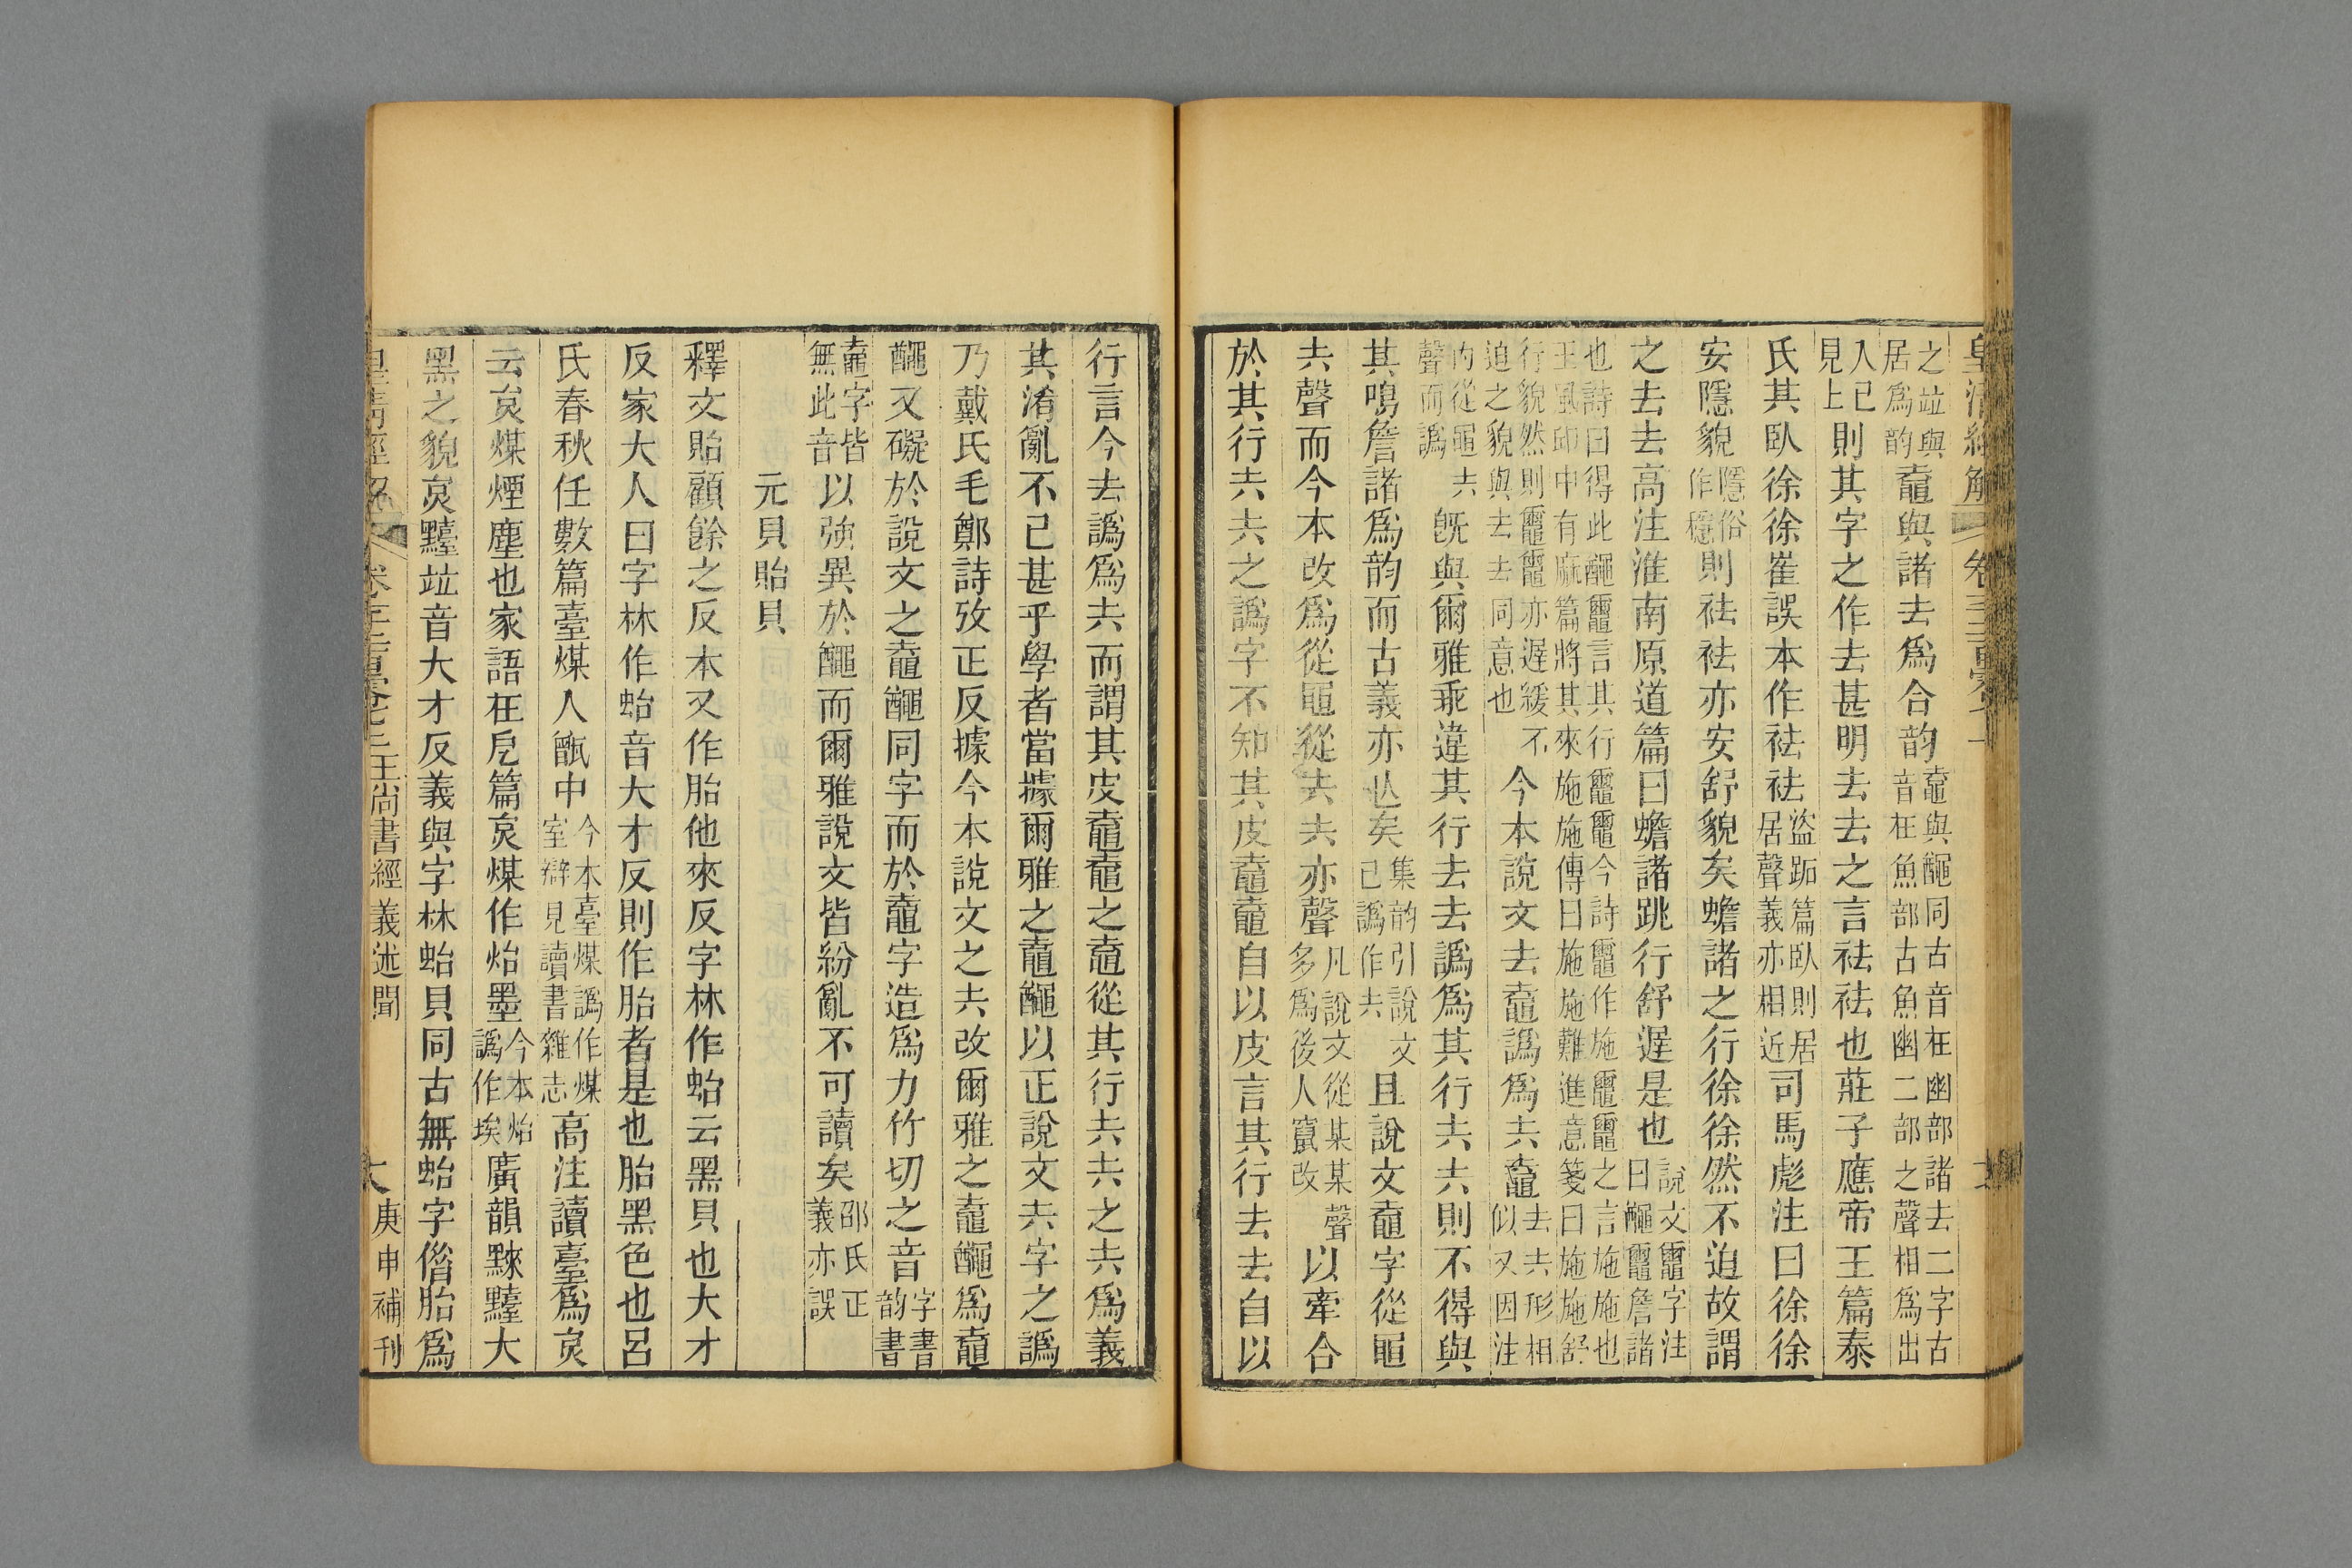 之竝與
居爲韵
鼀與諸去爲合韵
鼀與𪓰同古音在幽部諸去二字古
音在魚部古魚幽二部之聲相爲出
入已
見上
則其字之作去甚明去去之言袪袪也莊子應帝王篇泰
氏其臥徐徐崔譔本作袪袪
盜跖篇臥則居
居聲義亦相近
司馬彪注曰徐徐
安隱貌
隱俗
作穩
則袪袪亦安舒貌矣蟾諸之行徐徐然不迫故謂
之去去高注淮南原道篇曰蟾諸跳行舒遲是也
說文𪓿字注
曰𪓰𪓿詹諸
也詩曰得此𪓰𪓿言其行𪓿𪓿今詩𪓿作施𪓿𪓿之言施施也
王風邱中有麻篇將其來施施傳曰施施難進意箋曰施施舒
行貌然則𪓿𪓿亦遲緩不
迫之貌與去去同意也
今本說文去鼀譌爲圥鼀
去圥形相
似又因注
內從黽圥
聲而譌
旣與爾雅乖違其行去去譌爲其行圥圥則不得與
其鳴詹諸爲韵而古義亦亾矣
集韵引說文
已譌作圥
且說文鼀字從黽
圥聲而今本改爲從黽從圥圥亦聲
凡說文從某某聲
多爲後人竄改
以牽合
於其行圥圥之譌字不知其皮鼀鼀自以皮言其行去去自以
行言今去譌爲圥而謂其皮鼀鼀之鼀從其行圥圥之圥爲義
其淆亂不已甚乎學者當據爾雅之鼀𪓰以正說文圥字之譌
乃戴氏毛鄭詩攷正反據今本說文之圥改爾雅之鼀𪓰爲鼀
𪓰又礙於說文之鼀𪓰同字而於鼀字造爲力竹切之音
字書
韵書
鼀字皆
無此音
以強異於𪓰而爾雅說文皆紛亂不可讀矣
邵氏正
義亦誤
元貝貽貝
釋文貽顧餘之反本又作胎他來反字林作蛤云黑貝也大才
反家大人曰字林作蛤音大才反則作胎者是也胎黑色也呂
氏春秋任數篇臺煤入甑中
今本臺煤譌作煤
室辯見讀書雜志
高注讀臺爲炱
云炱煤煙塵也家語在厄篇炱煤作炲墨
今本炲
譌作埃
廣韻𪑚黱大
黑之貌炱黱竝音大才反義與字林蛤貝同古無蛤字偝胎爲
王尚書經義述聞
庚申補刊